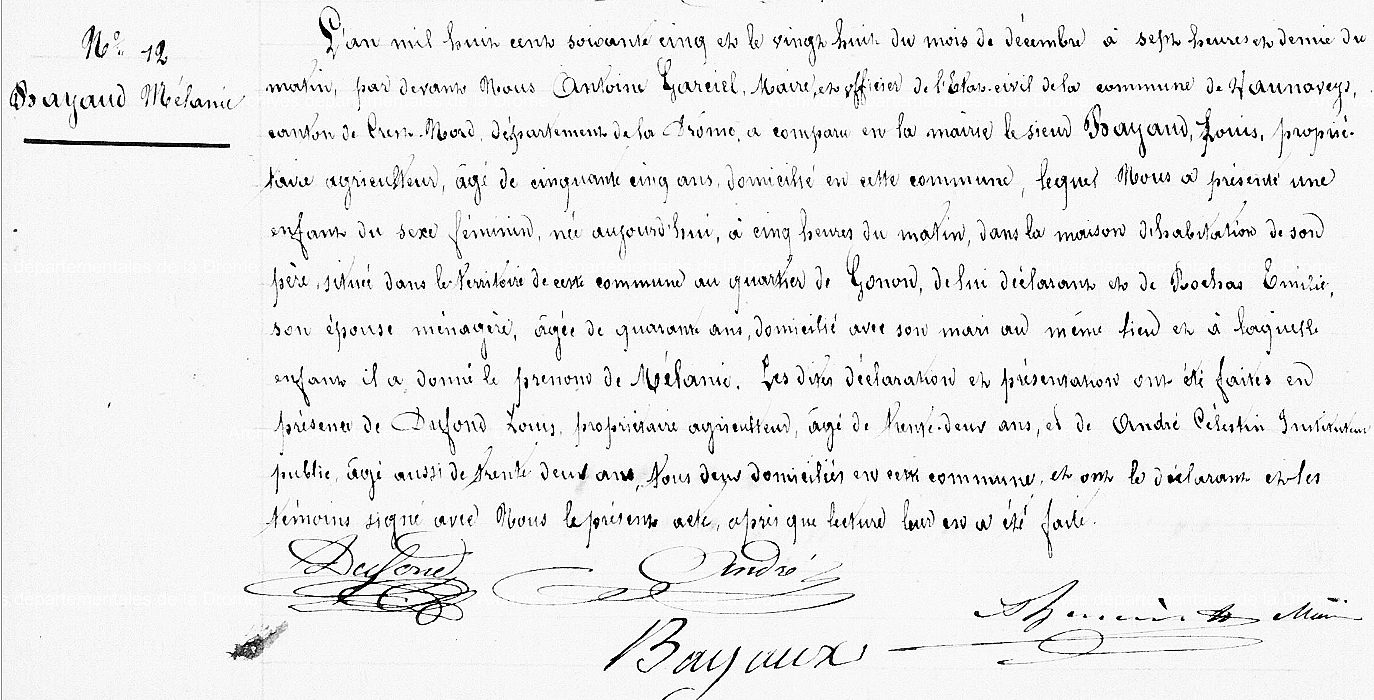 N° 12
Bayaud Mélanie
L'an mil huit cent soixante cinq et le vingt huit du mois de décembre à sept heures et demie du
matin, par devant Nous Antoine Garciel, Maire, et officier de l'Etat-civil de la commune de Vaunaveys,
canton de Crest-Nord, département de la Drôme, a comparu en la mairie le sieur Bayaud, Louis, proprié-
taire agriculteur, âgé de cinquante cinq ans, domicilié en cette commune, lequel Nous a présenté une
enfant du sexe féminin, née aujourd'hui, à cinq heures du matin, dans la maison d'habitation de son
père, située dans le territoire de cette commune au quartier de Gonon, de lui déclarant et de Rochas Emilie,
son épouse ménagère, âgée de quarante ans, domicilié avec son mari au même lieu et à laquelle
enfant il a donné le prénom de Mélanie. Les dites déclaration et présentation ont été faites en
présence de Dufond Louis, propriétaire agriculteur, âgé de trente-deux ans, et de André Célestin Instituteur
public, âgé aussi de trente deux ans, tous deux domiciliés en cette commune, et ont le déclarant et les
témoins signé avec Nous le présent acte, après que lecture leur en a été faite.
Dufond André
Bayaux
Maire
s departementales de la Drome
s departementales de la Drome